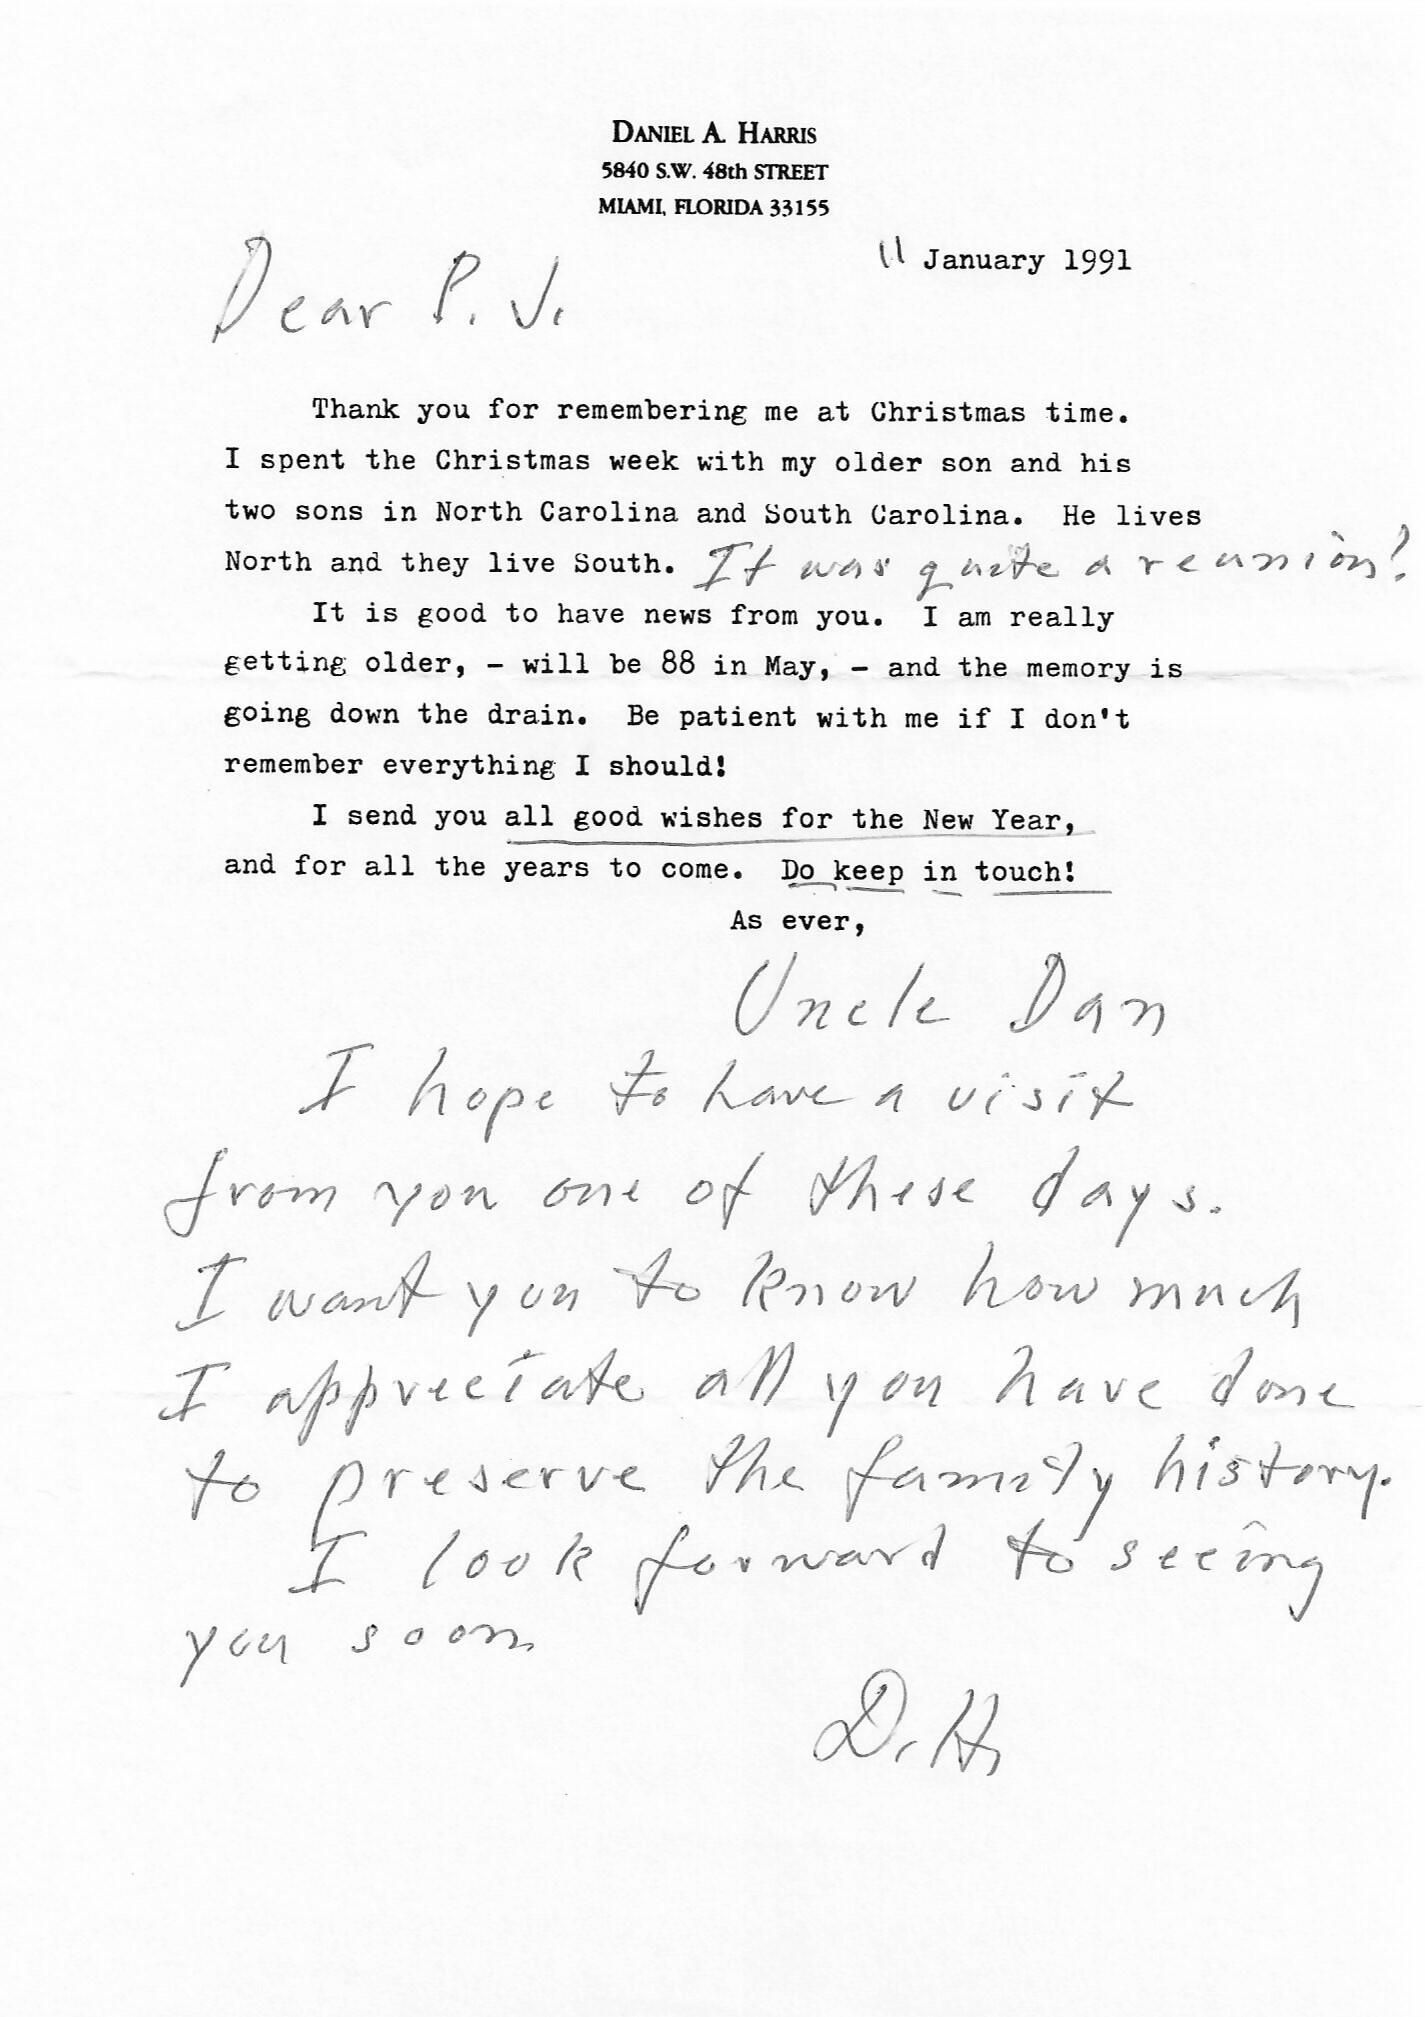 DANIEL A. HARRIS
5840 S.W. 48th STREET
MIAMI, FLORIDA 33155
11 January 1991
Dear P. J.
Thank you for remembering me at Christmas time.
I spent the Christmas week with my older son and his
two sons in North Carolina and South Carolina. He lives
North and they live South. It was quite a reunion!
It is good to have news from you. I am really
getting older, - will be 88 in May, - and the memory is
going down the drain. Be patient with me if I don't
remember everything I should!
I send you all good wishes for the New Year,
and for all the years to come. Do keep in touch!
As ever,
Uncle Dan
I hope to have a visit
from you one of these days.
I want you to know how much
I appreciate all you have done
to preserve the family history.
I look forward to seeing
you soon
D. H.